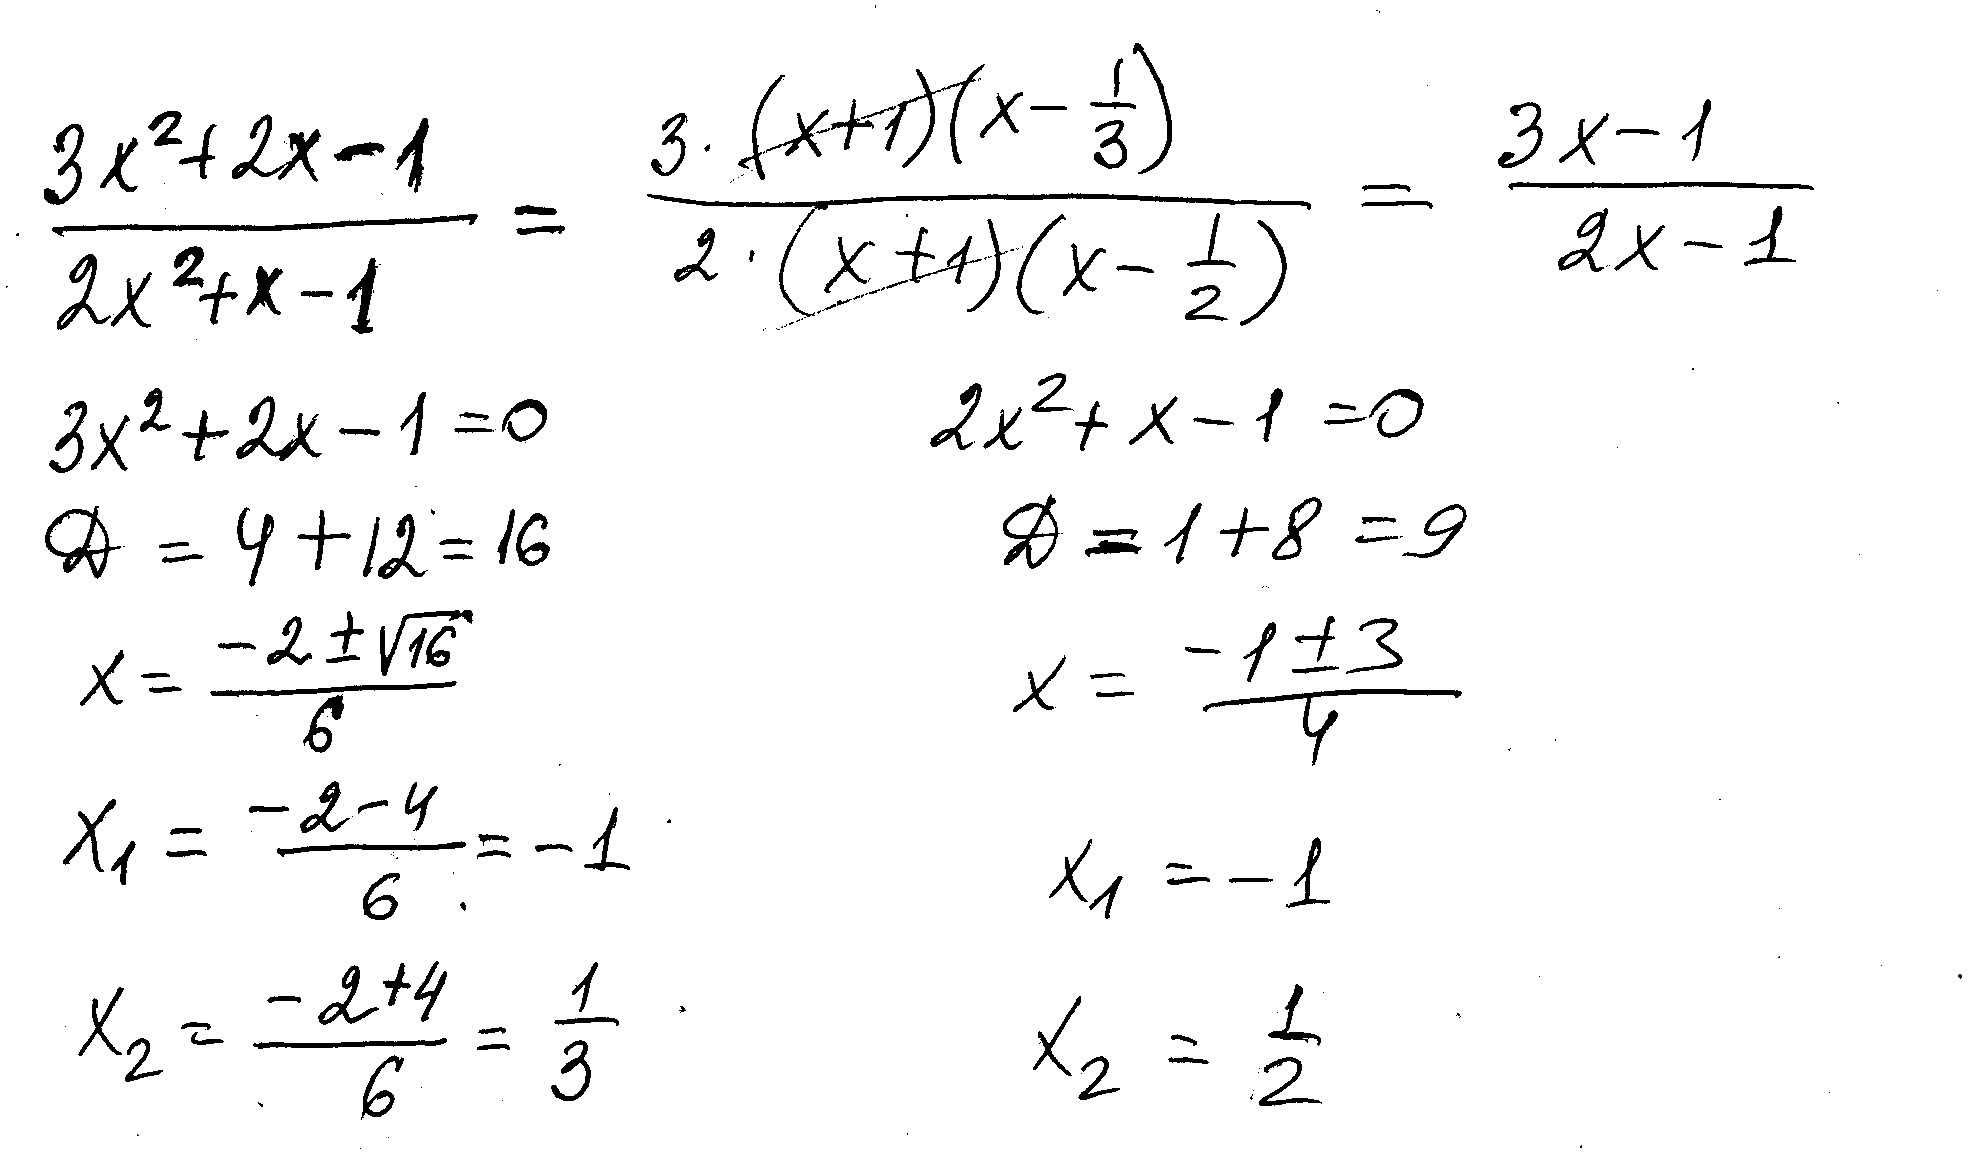 (3x²+2x-1)/(2x²+x-1) = (3·(x+1)(x-1/3))/(2·(x+1)(x-1/2)) = (3x-1)/(2x-1)
3x²+2x-1=0
D=4+12=16
x=(-2±√16)/6
x₁=(-2-4)/6=-1
x₂=(-2+4)/6=1/3
2x²+x-1=0
D=1+8=9
x=(-1±3)/4
x₁=-1
x₂=1/2